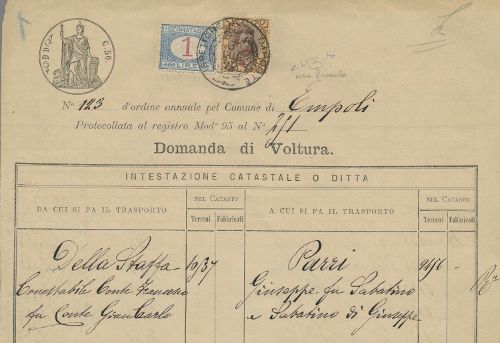 C. 50
SEGNATASSE
1
LIRE
Nº 123 d'ordine annuale pel Comune di Empoli
Protocollata al registro Modº 95 al Nº 271
Domanda di Voltura.
INTESTAZIONE CATASTALE O DITTA
DA CUI SI FA IL TRASPORTO
NEL CATASTO
Terreni Fabbricati
A CUI SI FA IL TRASPORTO
NEL CATASTO
Terreni Fabbricati
Della Staffa 1937
Conestabile Conte Francesco
fu Conte Gian Carlo
Parri 2456 -
Giuseppe fu Sabatino
e Sabatino di Giuseppe